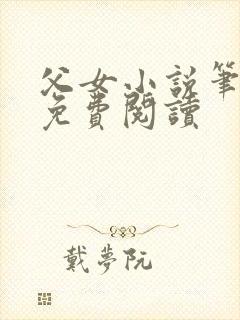 父女小说筆
免費閱讀
戴夢阮